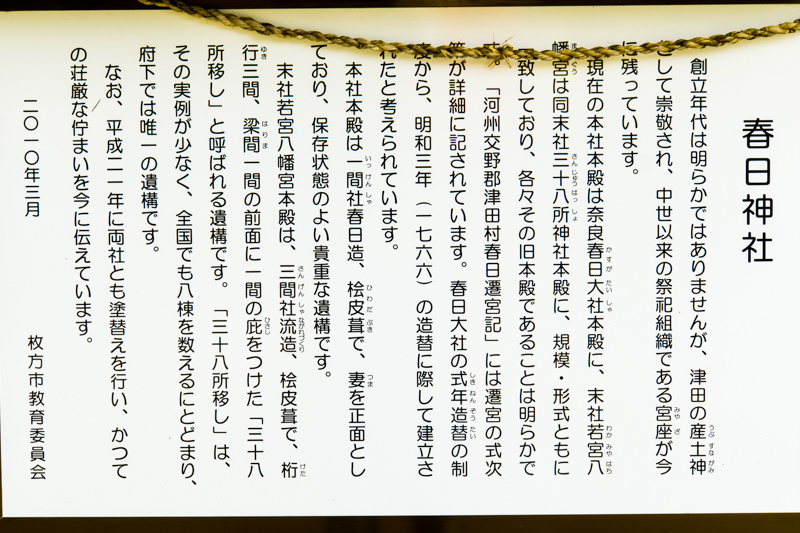 春日神社
創立年代は明らかではありませんが、津田の産土神
して崇敬され、中世以来の祭祀組織である宮座が今
に残っています。
現在の本社本殿は奈良春日大社本殿に、末社若宮八
幡宮は同末社三十八所神社本殿に、規模・形式ともに
一致しており、各々その旧本殿であることは明らかで
す。「河州交野郡津田村春日遷宮記」には遷宮の式次
第が詳細に記されています。春日大社の式年造替の制
度から、明和三年（一七六六）の造替に際して建立さ
れたと考えられています。
本社本殿は一間社春日造、桧皮葺で、妻を正面とし
ており、保存状態のよい貴重な遺構です。
末社若宮八幡宮本殿は、三間社流造、桧皮葺で、桁
行三間、梁間一間の前面に一間の庇をつけた「三十八
所移し」と呼ばれる遺構です。「三十八所移し」は、
その実例が少なく、全国でも八棟を数えるにとどまり、
府下では唯一の遺構です。
なお、平成二一年に両社とも塗替えを行い、かつて
の荘厳な佇まいを今に伝えています。
二〇一〇年三月
枚方市教育委員会